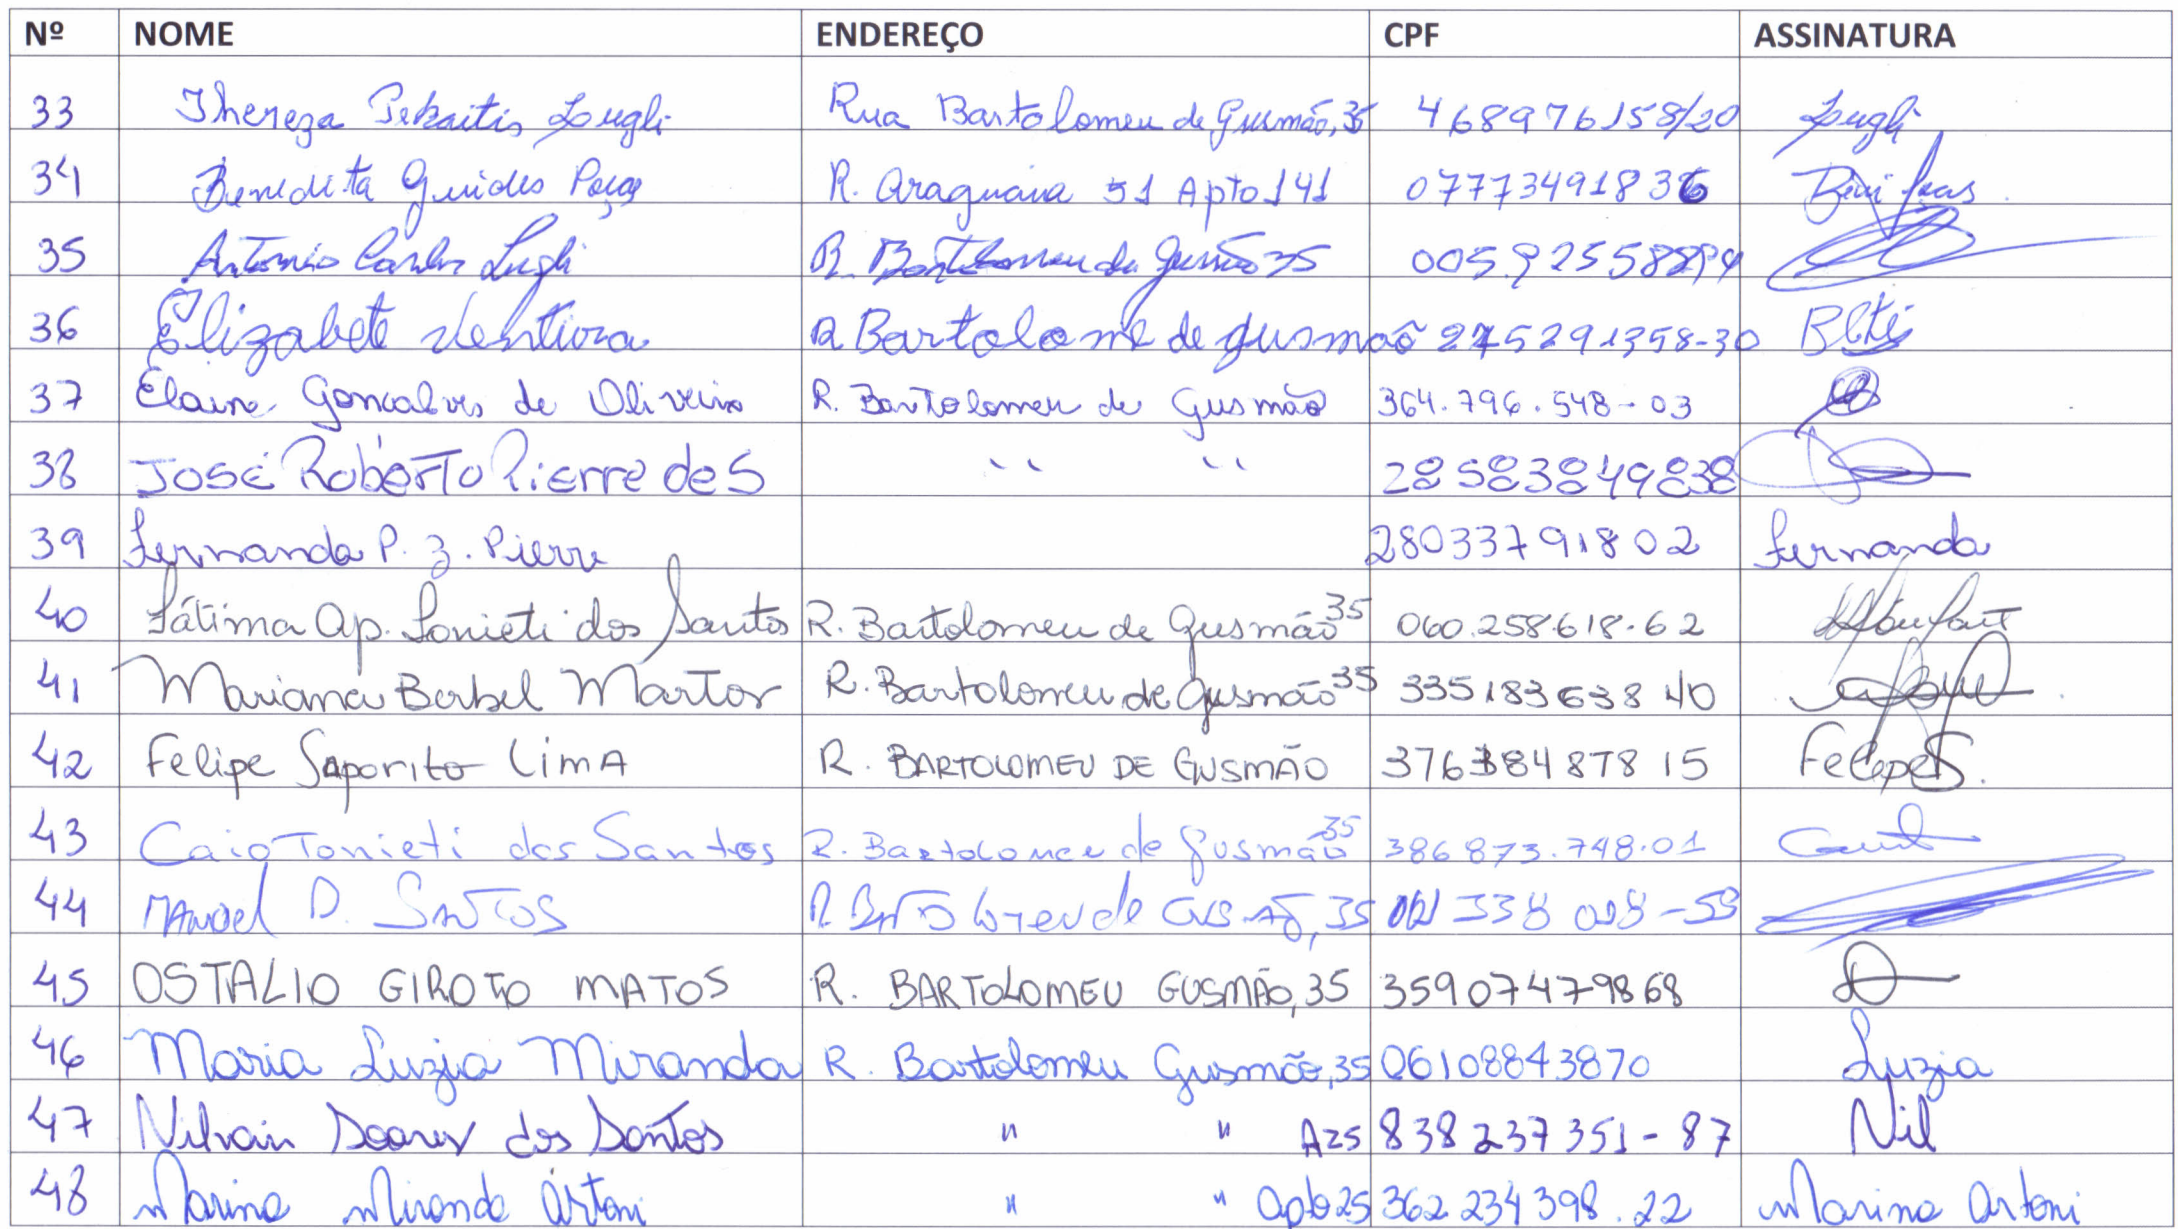 Nº NOME ENDEREÇO CPF ASSINATURA
33 Thereza Pekaitis Lugli Rua Bartolomeu de Gusmão, 35 468976158/20 Lugli
34 Benedita Guides Poças R. Araguaia 51 Apto 141 07773491836
35 Antonio Carlos Lugli R. Bartolomeu de Gusmão 35
36 Elizabete Ventura R Bartolome de gusmaõ 275291358-30
37 Elaine Goncalves de Oliveira R. Bartolomeu de Gusmão 364.796.548-03
38 JOSÉ ROBERTO Pierre de S " " 28583849838
39 Fernanda P. Z. Pierre 28033791802 Fernanda
40 Fátima Ap. Tonieti dos Santos R. Bartolomeu de Gusmão 35 060.258.618.62
41 Mariana Berbel Martos R. Bartolomeu de Gusmão 35 335183638 40
42 Felipe Saporito Lima R. BARTOLOMEU DE GUSMÃO 376384878 15 Felipe S.
43 Caio Tonieti dos Santos R. Bartolomeu de Gusmão 35 386873.748.01
44 MANOEL D. SANTOS 35
45 OSTALIO GIROTO MATOS R. BARTOLOMEU GUSMÃO, 35 35907479868
46 Maria Luzia Miranda R. Bartolomeu Gusmão, 35 06108843870 Luzia
47 Nilvain Soares dos Santos " " A25 838237351-87 Nil
48 Marina Miranda Artoni " " Apto 25 362 234 398.22 Marina Artoni